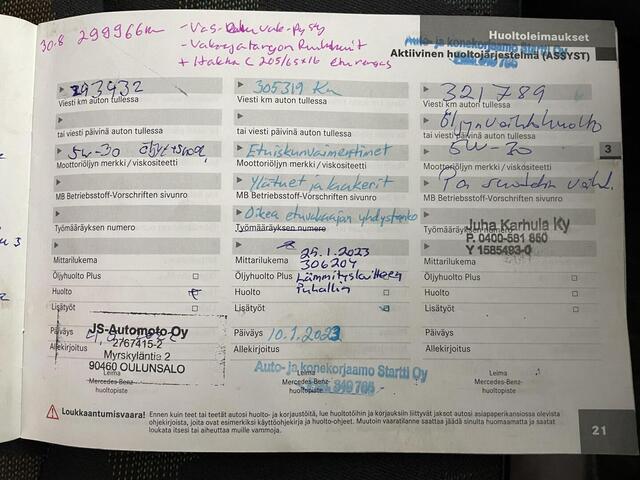 30.8 299966km
- Vakaajatangon
+ Hakka C 205/65x16 eturengas
Huoltoleimaukset
Auto- ja konekorjaamo Startti Oy
Aktiivinen huoltojärjestelmä (ASSYST)
293932
Viesti km auton tullessa
tai viesti päivinä auton tullessa
5W-30 öljyt+suod.
Moottoriöljyn merkki / viskositeetti
MB Betriebsstoff-Vorschriften sivunro
Työmääräyksen numero
Mittarilukema
Öljyhuolto Plus
Huolto
Lisätyöt
Päiväys
Allekirjoitus
JS-Automoto Oy
2767415-2
Myrskyläntie 2
90460 OULUNSALO
Leima
Mercedes-Benz-
huoltopiste
305319 Km
Viesti km auton tullessa
tai viesti päivinä auton tullessa
Etuiskunvaimentimet
Moottoriöljyn merkki / viskositeetti
Ylätuet ja laakerit
MB Betriebsstoff-Vorschriften sivunro
Oikea etuvakaajan yhdystanko
Työmääräyksen numero
25.1.2023
Mittarilukema 306204
Öljyhuolto Plus Lämmityslaitteen
Huolto Puhallin
Lisätyöt
Päiväys 10.1.2023
Allekirjoitus
Auto- ja konekorjaamo Startti Oy
Leima
Mercedes-Benz-
huoltopiste
321789
Viesti km auton tullessa
Öljynvaihtohuolto
tai viesti päivinä auton tullessa
5W-30
Moottoriöljyn merkki / viskositeetti
MB Betriebsstoff-Vorschriften sivunro
Työmääräyksen numero
Juha Karhula Ky
P. 0400-581 850
Y 1585493-0
Mittarilukema
Öljyhuolto Plus
Huolto
Lisätyöt
Päiväys
Allekirjoitus
Leima
Mercedes-Benz-
huoltopiste
3
Loukkaantumisvaara! Ennen kuin teet tai teetät autosi huolto- ja korjaustöitä, lue huoltotöihin ja korjauksiin liittyvät jaksot autosi asiapaperikansiossa olevista
ohjekirjoista, joita ovat esimerkiksi käyttöohjekirja ja huolto-ohjeet. Muutoin vaaratilanne saattaa jäädä sinulta huomaamatta ja saatat
loukata itsesi tai aiheuttaa muille vammoja.
21